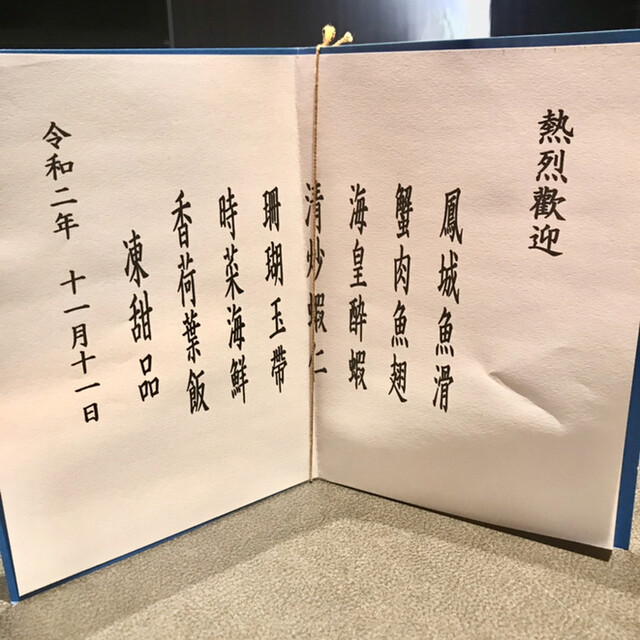 熱烈歡迎
鳳城魚滑
蟹肉魚翅
海皇醉蝦
清炒蝦仁
珊瑚玉帶
時菜海鮮
香荷葉飯
凍甜品
令和二年 十一月十一日